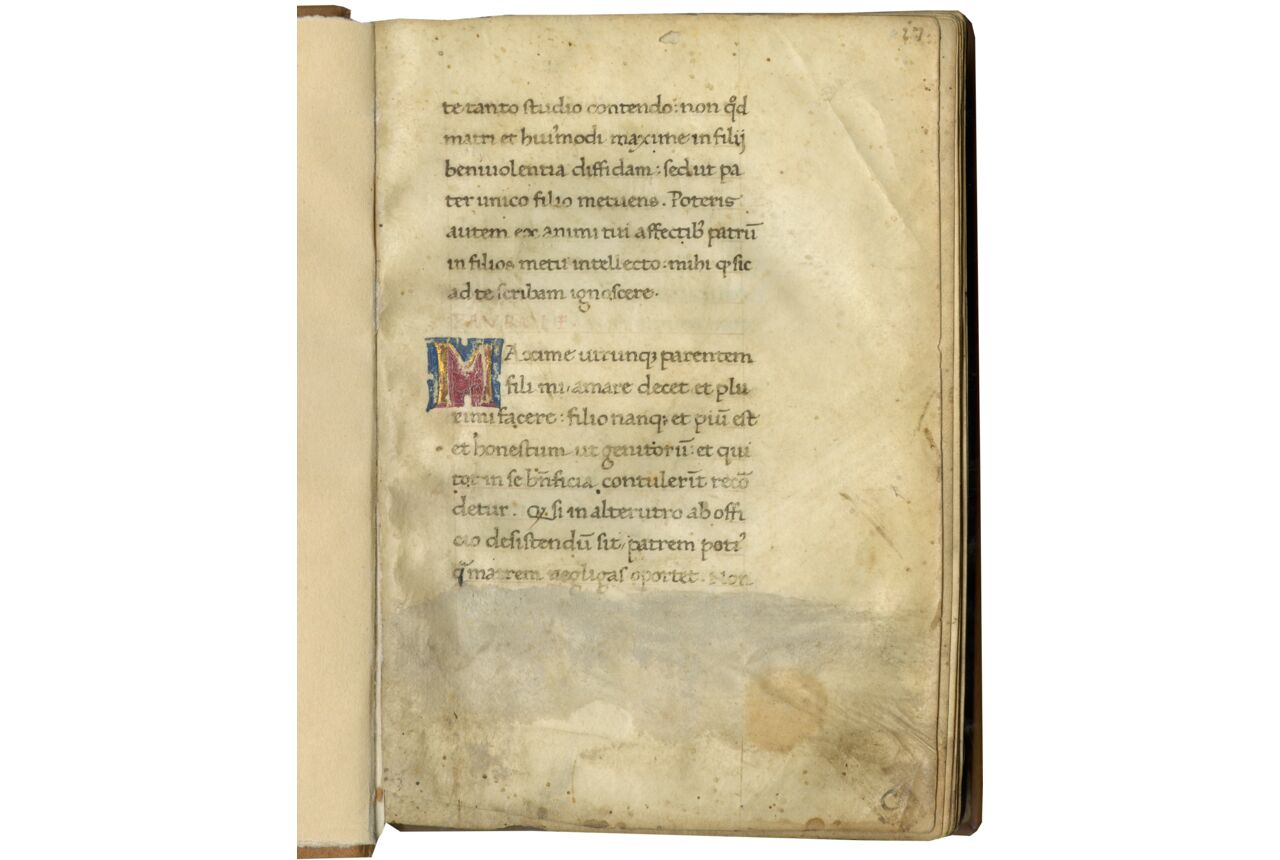 27.
te tanto studio contendo: non qd
matri et huiusmodi maxime in filij
benivolentia diffidam: sed ut pa
ter unico filio metuens. Poteris
autem ex animi tui affectib' patrū
in filios metu intellecto: mihi q sic
ad te scribam ignoscere.
MAxime utrunq; parentem
fili mi amare decet et plu
rimi facere: filio nanq; et piū est
et honestum ut genitorū: et qui
tot in se bn̄ficia contulerīt recō
detur. Q si in alterutro ab offi
cio desistendū sit, patrem poti'
q̄ matrem negligas oportet. Non
C